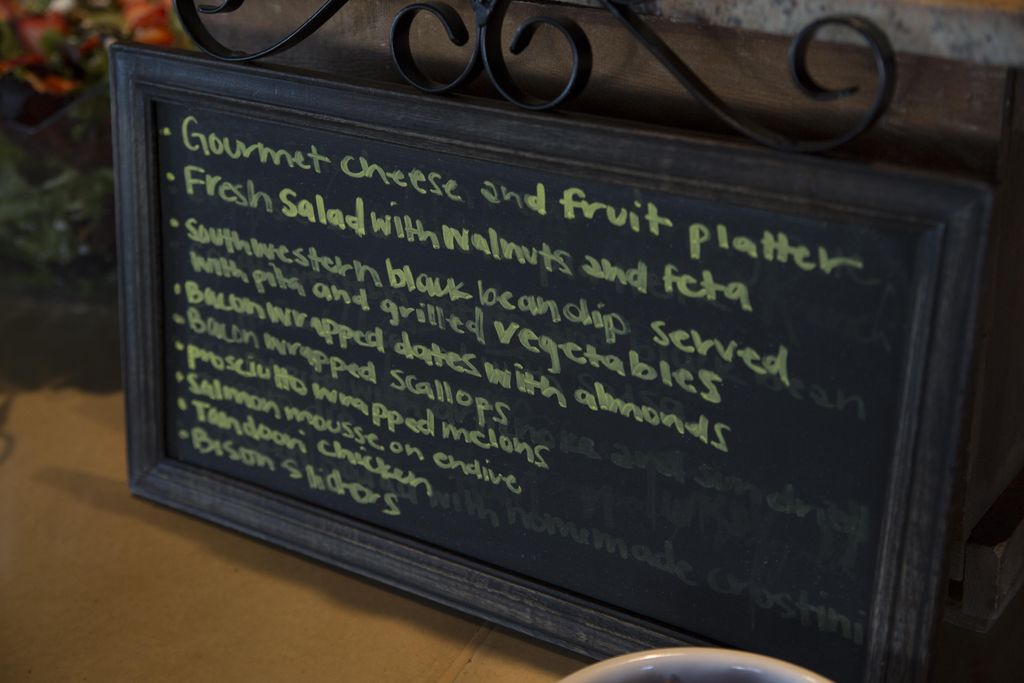 • Gourmet cheese and fruit platter
• Fresh Salad with Walnuts and feta
• Southwestern black bean dip served
with pita and grilled vegetables
• Bacon wrapped dates with almonds
• Bacon wrapped scallops
• prosciutto wrapped melons
• Salmon mousse on endive
• Tandoori chicken
• Bison sliders
bean
and sundried
with homemade crostini